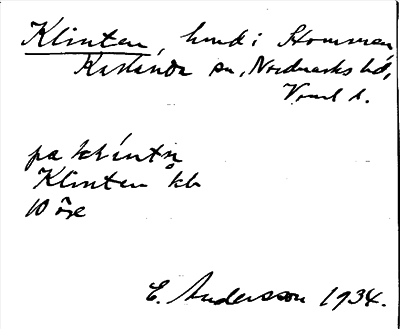 Klinten, lund i Stommen,
Karlanda sn, Nordmarks hd,
Värml l.
pa klìntn
Klinten kb
10 öre
E. Andersson 1934.